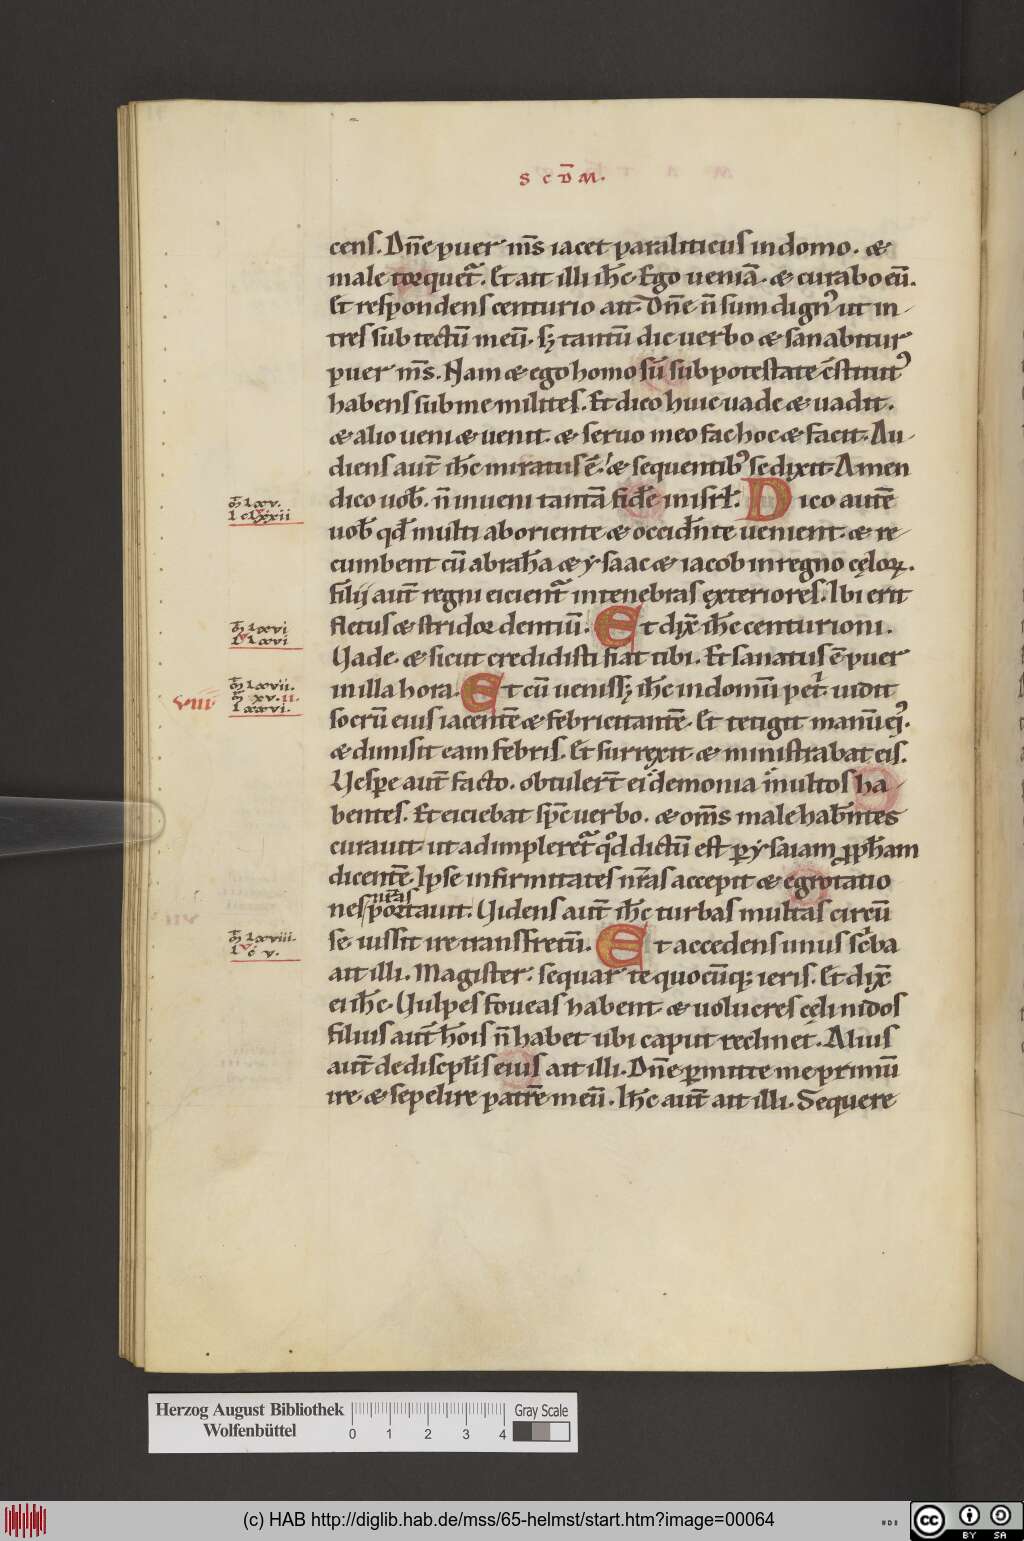 S C D̄ M.
cens. Dn̄e puer m̄s iacet paraliticus in domo. &
male torquet᷑. Et ait illi ih̄c. Ego ueniā. & curabo eū.
Et respondens centurio ait. Dn̄e n̄ sum dignꝰ ut in-
tres sub tectū meū. sꝫ tantū dic uerbo & sanabitur
puer m̄s. Nam & ego homo sū sub potestate c̄stitutꝰ
habens sub me milites. Et dico huic uade & uadit.
& alio ueni & uenit. & seruo meo fac hoc & facit. Au-
diens aut̄ ih̄c miratus ē. & sequentibꝰ se dixit. Amen
dico uob̄. n̄ inueni tantā fidē in isrl̄. Dico autē
uob̄ qd̄ multi ab oriente & occidn̄te uenient. & re-
cumbent cū abrah̄a & ysaac & iacob in regno cęloꝝ.
filij aut̄ regni eicient᷑ in tenebras exteriores. Ibi erit
fletus & stridor dentiū. Et dix̄ ih̄c centurioni.
Uade. & sicut credidisti fiat tibi. Et sanatus ē puer
in illa hora. Et cū uenissꝫ ih̄c in domū pet̄. uidit
socrū eius iacentē & febricitantē. Et tetigit manū eiꝰ.
& dimisit eam febris. Et surrexit & ministrabat eis.
Uespe aut̄ facto. obtuler̄t ei demonia multos ha-
bentes. Et eiciebat sp̄c uerbo. & om̄s male habn̄tes
curauit. ut adimpleret᷑ qd̄ dictū est ꝑ ysaiam ꝓph̄am
dicentē. Ipse infirmitates nr̄as accepit & egrotatio
nr̄as
nes portauit. Uidens aut̄ ih̄c turbas multas circū
se. iussit ire transfretū. Et accedens unus sc̄ba
ait illi. Magister. sequar te quocūqꝫ ieris. Et dix̄
ei ih̄c. Uulpes foueas habent. & uolucres cęli nidos
filius aut̄ h̄ois n̄ habet ubi caput reclinet. Alius
aut̄ de discipl̄is eius ait illi. Dn̄e ꝑmitte me primū
ire. & sepelire patrē meū. Ih̄c aut̄ ait illi. Sequere
m̄ lxv.
l clxxii
m̄ lxvi
l lxvi
VIII
m̄ lxvii.
m̄ xv.
l xxvi.
m̄ lxviii.
l c v.
Herzog August Bibliothek
Wolfenbüttel
0 1 2 3 4
Gray Scale
(c) HAB http://diglib.hab.de/mss/65-helmst/start.htm?image=00064
cc BY SA